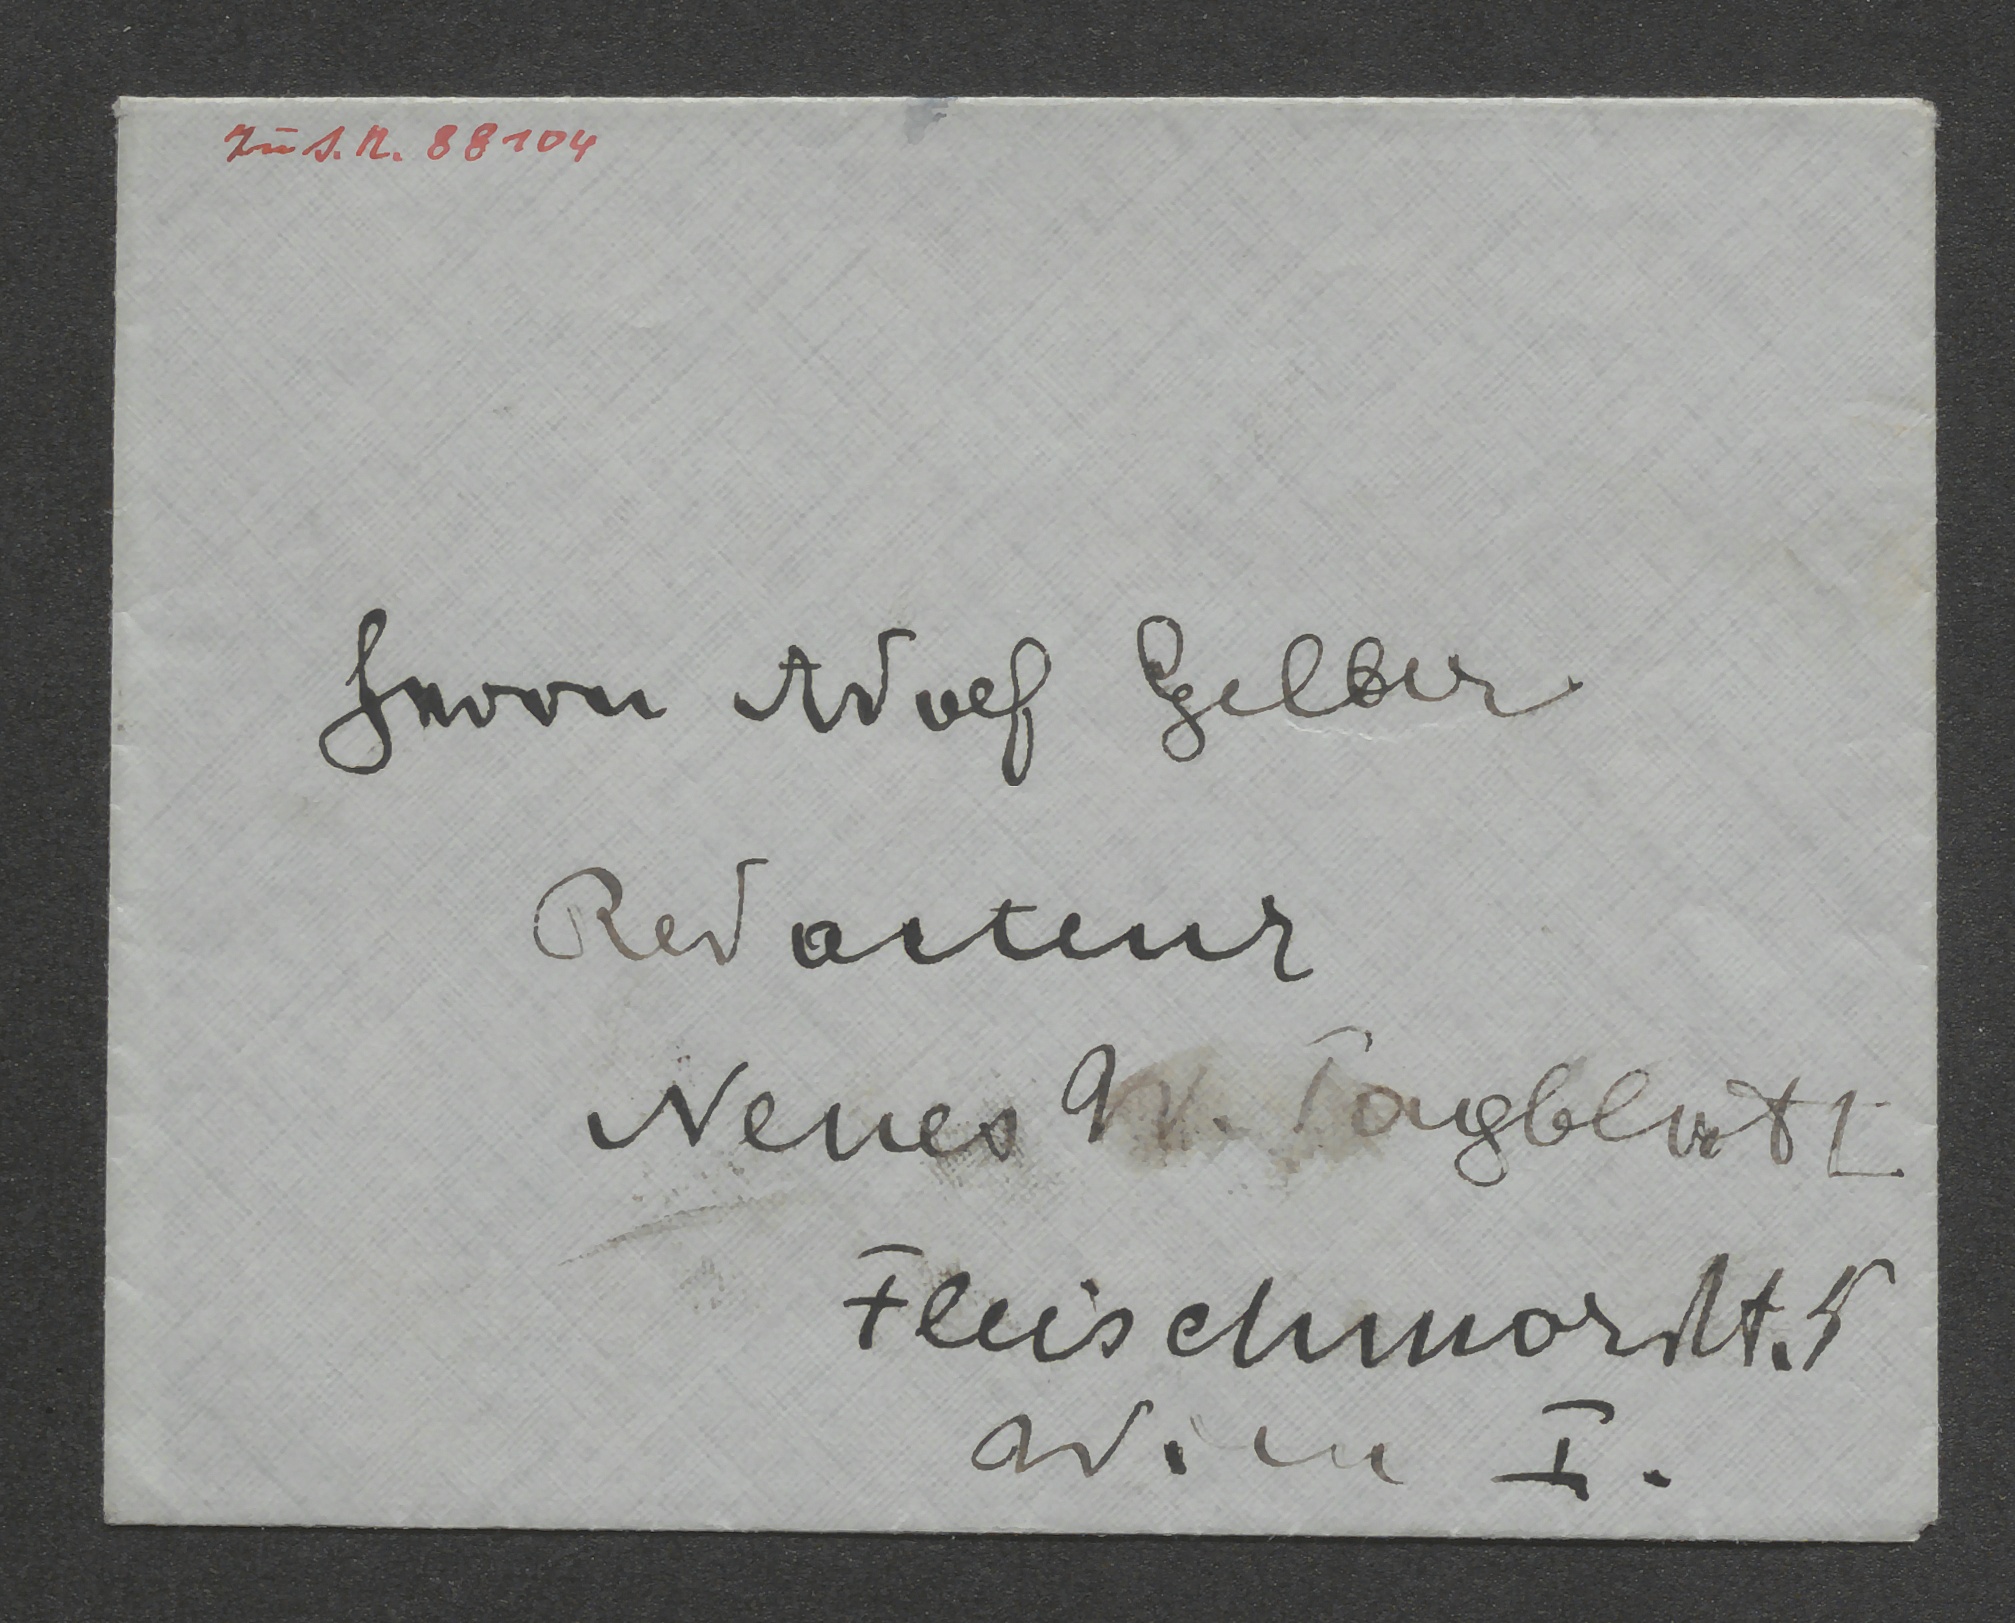 Zu I.N. 88104
Herrn Adolf Gelber
Redacteur
Neues W. Tagblatt
Fleischmarkt. 5
Wien I.